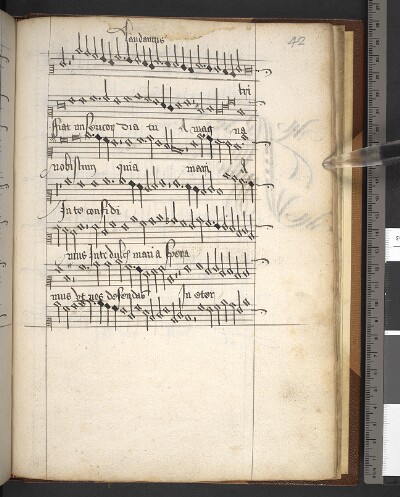 Laudamus
42
bri
fiat misericordia tu A mag na
nobiscum quia mari A
In te confidi
mus In te dulcis mari a spera
mus Ut nos defendas In eter